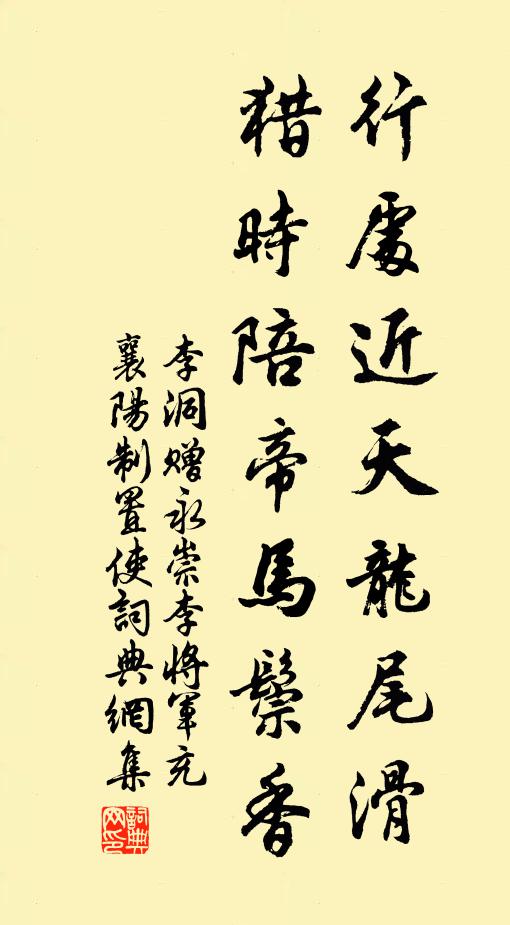 行處近天龍尾滑
猎時陪帝馬鬃香
李洞赠永崇李將軍充
襄陽制置使詞典網集
詞典网印